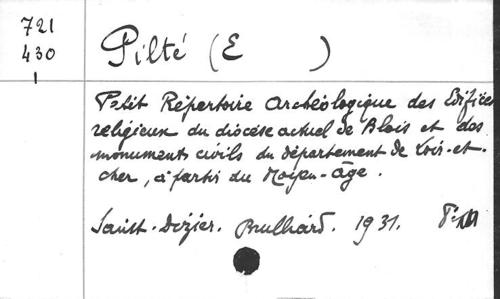 721
430
Pilté (E )
Petit Répertoire Archéologique des Edifices
religieux du diocèse actuel de Blois et des
monuments civils du département de Loir-et-
cher, à partir du Moyen-âge.
Saint-Dizier. Brulliard. 1931.